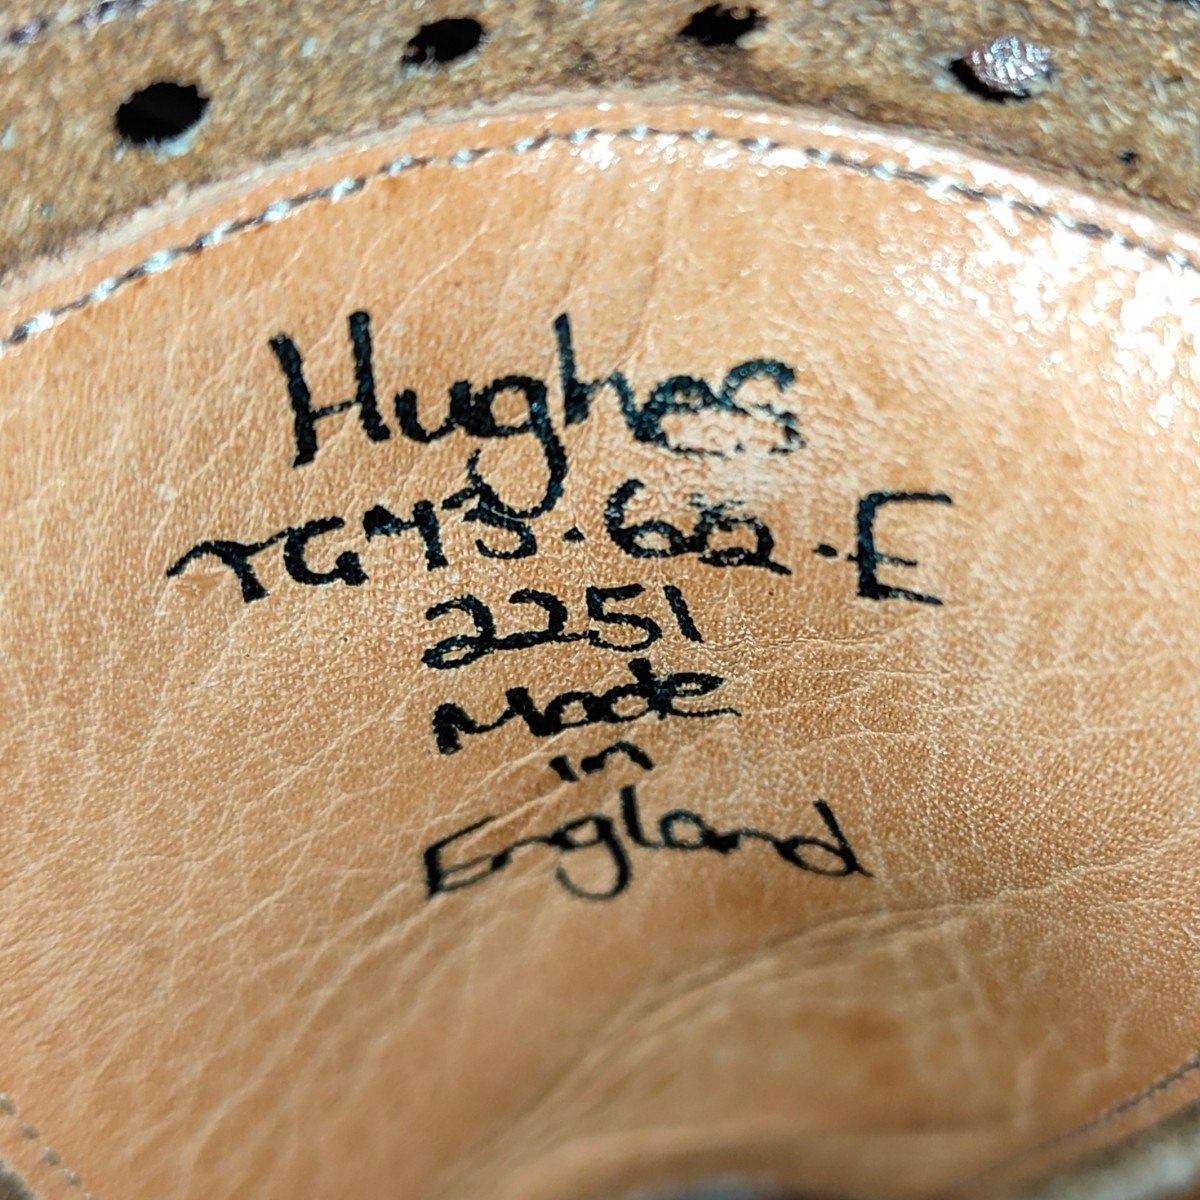 Hughes
TG73·62·E
2251
Made
in
England